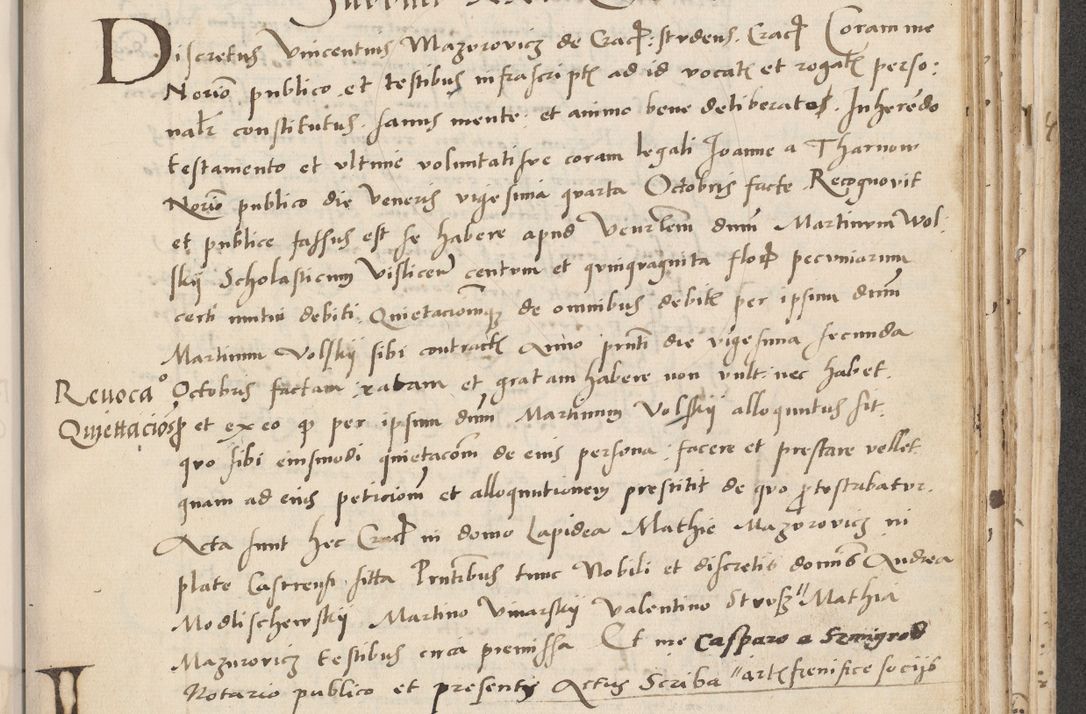 Discretus Vincentius Mazurovicz de Crac: studens. Crac Coram me
Norio publico et testibus infrascript ad id vocat et rogat perso:
nalr constitutus sanus mente et animo bene deliberatos. Inherendo
testamento et ultime voluntatis sue coram legali Joanne a Tharnow
Norio publico die Veneris vigesima quarta Octobris facte Recognovit
et publice fassus est se habere apud Venrlem dnum Martinum Wol:
skij Scholasticum Vislicen centum et quinquaginta flor pecuniarum
certi mutui debiti Quietacionemque de omnibus debit per ipsum dnum
Martinum Volskij sibi contract Anno prnti die vigesima secunda
Octobris factam ratam et gratam habere non vult nec habet
Revocao
Quiettacionis
et ex eo q per ipsum dnum Martinum Volskij alloquutus sit
quo sibi eiusmodi quietacom de eius persona facere et prestare vellet
quam ad eius peticiom et alloquutionem prestitit de quo protestabatur.
Acta sunt hec Crac in domo lapidea Mathie Mazurovicz in
platea Castrensi sitta Prntibus tunc Nobili et discretis domis Andrea
Modlischewskij Martino Vinarskij Valentino Strusz Mathia
Mazurovicz testibus circa premissa Et me Casparo a Szmigrod
Notario publico et presentis Actus Scriba